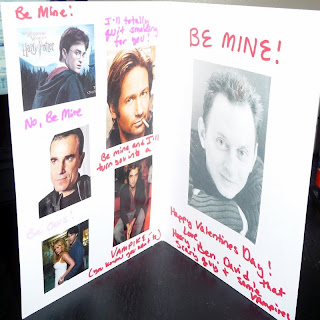 Be Mine!
Harry Potter
No, Be Mine
Be Ours!
I'll totally
quit smoking
for you!
Be mine and I'll
turn you into a
VAMPIRE!
(you know you want it)
BE MINE!
Happy Valentines Day!
Love
Harry, Ben, David, that
Scary guy + Some
Vampires